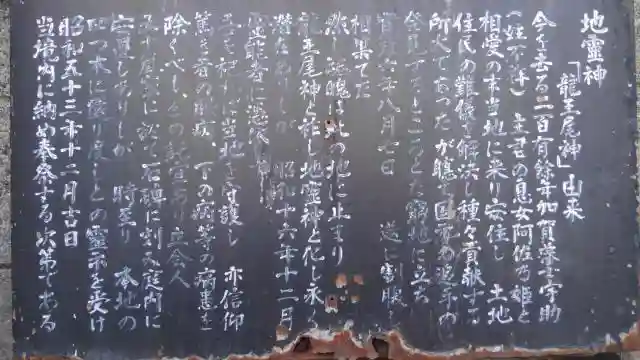 地霊神
「龍王尾神」由来
今を去る二百有餘年加賀藩士宇助
(姓不詳)主君の息女阿佐乃姫と
相愛の末当地に来り安住し 土地
住民の難儀を解決し種々貢献する
所大であったが 国資の追手の
発見するところとなり窮地に立ち
八月七日 遂に割腹し
相果てた
魂は此の地に止まり
龍王尾神と 地霊神と化し永く
潜 ありしが 昭和十六年十二月
霊能者に憑依
予を祀れば当地を守護し 亦信仰
篤き者の眼病、下の病等の病患を
除くべし、との託宣あり立会人
に於て石碑に刻み庭内に
安置しありしが 時至り 本地の
四つ木に還り度しとの霊示を受け
昭和五十三年十二月吉日
当境内に納め奉祭する次第である